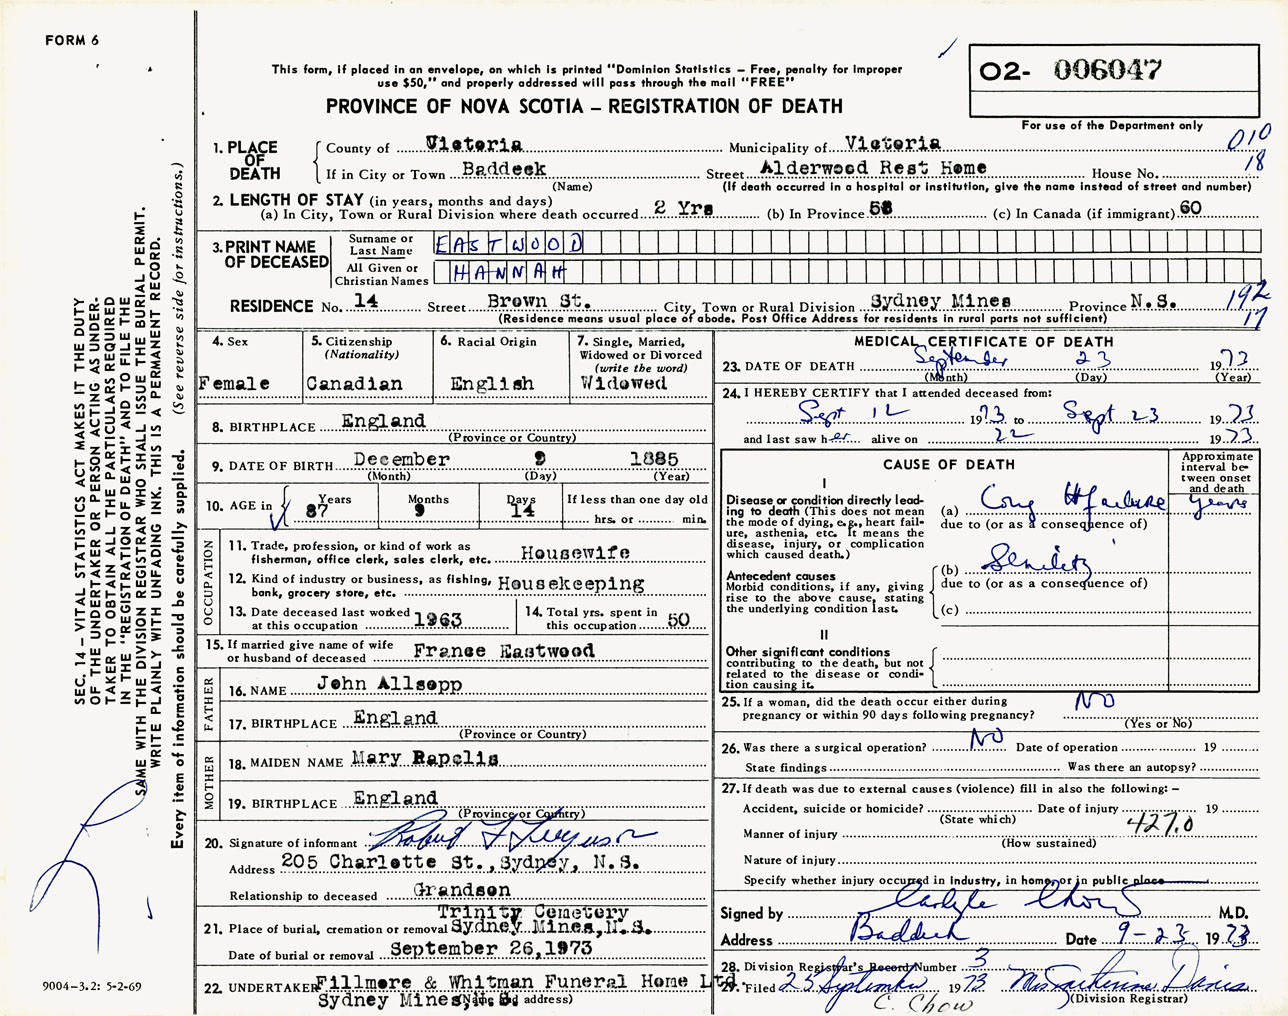 FORM 6
This form, if placed in an envelope, on which is printed "Dominion Statistics – Free, penalty for improper
use $50," and properly addressed will pass through the mail "FREE"
PROVINCE OF NOVA SCOTIA – REGISTRATION OF DEATH
O2- 006047
For use of the Department only
010
18
1. PLACE OF DEATH
County of Victoria Municipality of Victoria
If in City or Town Baddeck Street Alderwood Rest Home House No.
(Name) (If death occurred in a hospital or institution, give the name instead of street and number)
2. LENGTH OF STAY (in years, months and days)
(a) In City, Town or Rural Division where death occurred 2 Yrs (b) In Province 58 (c) In Canada (if immigrant) 60
3. PRINT NAME OF DECEASED
Surname or Last Name EASTWOOD
All Given or Christian Names HANNAH
RESIDENCE No. 14 Street Brown St. City, Town or Rural Division Sydney Mines Province N.S.
(Residence means usual place of abode. Post Office Address for residents in rural parts not sufficient)
192
17
SEC. 14 – VITAL STATISTICS ACT MAKES IT THE DUTY
OF THE UNDERTAKER OR PERSON ACTING AS UNDER-
TAKER TO OBTAIN ALL THE PARTICULARS REQUIRED
IN THE "REGISTRATION OF DEATH" AND TO FILE THE
SAME WITH THE DIVISION REGISTRAR WHO SHALL ISSUE THE BURIAL PERMIT.
WRITE PLAINLY WITH UNFADING INK. THIS IS A PERMANENT RECORD.
Every item of information should be carefully supplied. (See reverse side for instructions.)
4. Sex
Female
5. Citizenship
(Nationality)
Canadian
6. Racial Origin
English
7. Single, Married,
Widowed or Divorced
(write the word)
Widowed
8. BIRTHPLACE England
(Province or Country)
9. DATE OF BIRTH December 9 1885
(Month) (Day) (Year)
10. AGE in
Years Months Days If less than one day old
87 9 14 hrs. or min.
OCCUPATION
11. Trade, profession, or kind of work as
fisherman, office clerk, sales clerk, etc. Housewife
12. Kind of industry or business, as fishing,
bank, grocery store, etc. Housekeeping
13. Date deceased last worked
at this occupation 1963
14. Total yrs. spent in
this occupation 50
15. If married give name of wife
or husband of deceased France Eastwood
FATHER
16. NAME John Allsopp
17. BIRTHPLACE England
(Province or Country)
MOTHER
18. MAIDEN NAME Mary Rapelis
19. BIRTHPLACE England
(Province or Country)
20. Signature of informant Robert F Ferguson
Address 205 Charlotte St., Sydney, N.S.
Relationship to deceased Grandson
Trinity Cemetery
21. Place of burial, cremation or removal Sydney Mines, N.S.
Date of burial or removal September 26, 1973
22. UNDERTAKER Fillmore & Whitman Funeral Home Ltd.
Sydney Mines, N.S.
(Name and address)
9004–3.2: 5-2-69
MEDICAL CERTIFICATE OF DEATH
23. DATE OF DEATH September 23 1973
(Month) (Day) (Year)
24. I HEREBY CERTIFY that I attended deceased from:
Sept 12 1973 to Sept 23 1973
and last saw her alive on 22 1973
CAUSE OF DEATH
Approximate interval between onset and death
I
Disease or condition directly lead-
ing to death (This does not mean
the mode of dying, e.g., heart fail-
ure, asthenia, etc. It means the
disease, injury, or complication
which caused death.)
(a) Cong H failure years
due to (or as a consequence of)
Antecedent causes
Morbid conditions, if any, giving
rise to the above cause, stating
the underlying condition last.
(b) Senility
due to (or as a consequence of)
(c)
II
Other significant conditions
contributing to the death, but not
related to the disease or condi-
tion causing it.
25. If a woman, did the death occur either during
pregnancy or within 90 days following pregnancy? NO
(Yes or No)
26. Was there a surgical operation? NO Date of operation 19
State findings Was there an autopsy?
27. If death was due to external causes (violence) fill in also the following:–
Accident, suicide or homicide? Date of injury 19
(State which)
427.0
Manner of injury
(How sustained)
Nature of injury
Specify whether injury occurred in industry, in home, or in public place
Signed by Carlyle Chow M.D.
Address Baddeck Date 9-23 1973
28. Division Registrar's Record Number 3
29. Filed 25 September 1973 Mrs Katherine Davis
(Division Registrar)
C. Chow